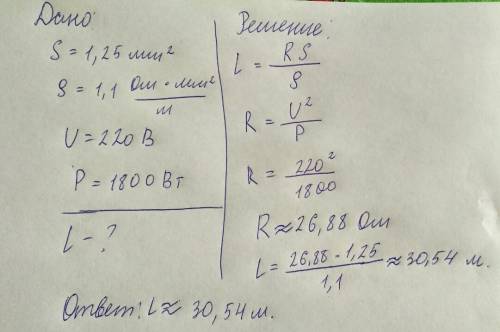 Дано:
S = 1,25 мм²
ρ = 1,1 Ом · мм² / м
U = 220 В
P = 1800 Вт
L - ?
Решение:
L = RS / ρ
R = U² / P
R = 220² / 1800
R ≈ 26,88 Ом
L = 26,88 · 1,25 / 1,1 ≈ 30,54 м.
Ответ: L ≈ 30,54 м.